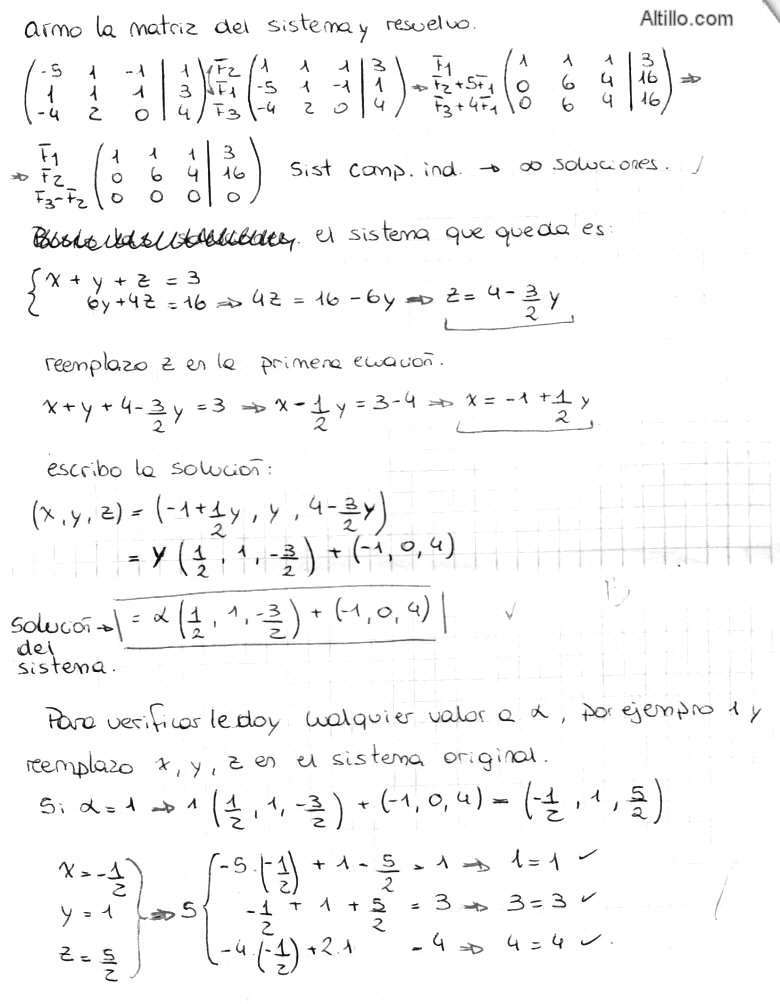 Altillo.com
Armo la matriz del sistema y resuelvo.
(-5 1 -1 | 1) F2 (1 1 1 | 3) F1 (1 1 1 | 3)
(1 1 1 | 3) F1 (-5 1 -1 | 1) ⇒ F2+5F1 (0 6 4 | 16) ⇒
(-4 2 0 | 4) F3 (-4 2 0 | 4) F3+4F1 (0 6 4 | 16)
F1 (1 1 1 | 3)
⇒ F2 (0 6 4 | 16) Sist comp. ind. → ∞ soluciones.
F3-F2 (0 0 0 | 0)
el sistema que queda es:
{ x + y + z = 3
6y+4z = 16 ⇒ 4z = 16 - 6y ⇒ z = 4 - 3/2 y
reemplazo z en la primera ecuación.
x + y + 4 - 3/2 y = 3 ⇒ x - 1/2 y = 3-4 ⇒ x = -1 + 1/2 y
escribo la solución:
(x, y, z) = (-1+1/2 y, y, 4-3/2 y)
= y (1/2, 1, -3/2) + (-1, 0, 4)
Solución → = α (1/2, 1, -3/2) + (-1, 0, 4)
del
sistema.
Para verificar le doy cualquier valor a α, por ejempro 1 y
reemplazo x, y, z en el sistema original.
Si α = 1 ⇒ 1 (1/2, 1, -3/2) + (-1, 0, 4) = (-1/2, 1, 5/2)
x = -1/2 -5.(-1/2) + 1 - 5/2 = 1 ⇒ 1=1 ✓
y = 1 } ⇒ S { -1/2 + 1 + 5/2 = 3 ⇒ 3=3 ✓
z = 5/2 -4.(-1/2) + 2.1 = 4 ⇒ 4=4 ✓